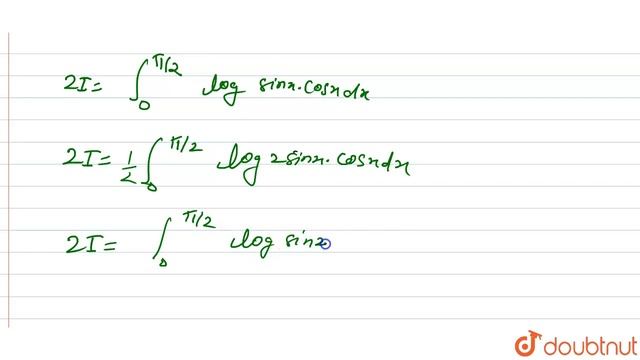 2I = ∫₀^π/2 log sinx.cosx dx
2I = 1/2 ∫₀^π/2 log 2sinx.cosx dx
2I = ∫₀^π/2 log sinx
doubtnut